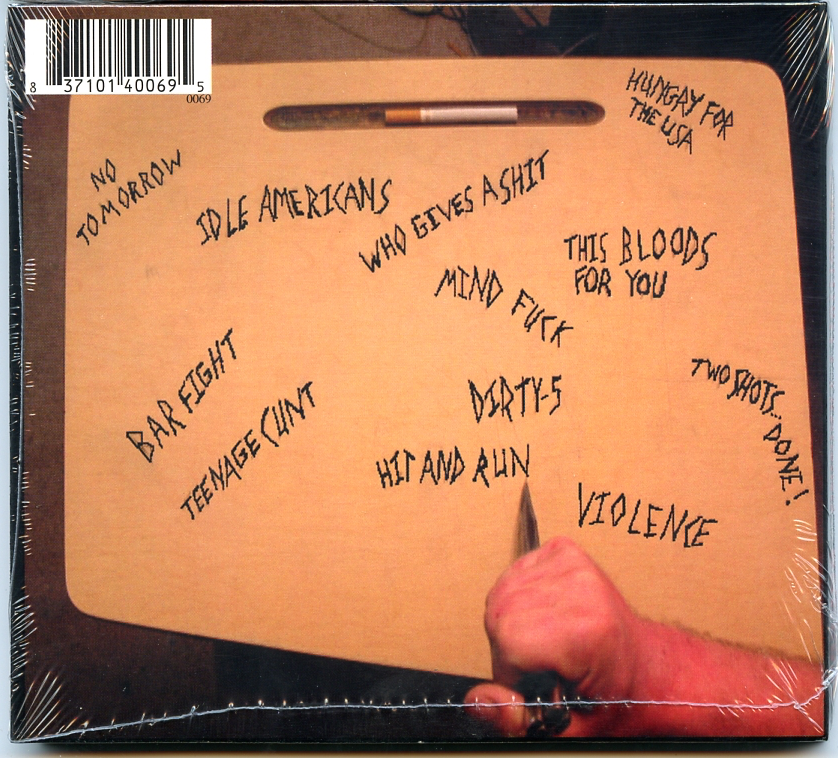 8 37101 40069 5
0069
HUNGRY FOR
THE USA
NO
TOMORROW
IDLE AMERICANS
WHO GIVES A SHIT
THIS BLOODS
FOR YOU
MIND FUCK
BAR FIGHT
TEENAGE CUNT
DIRTY-5
TWO SHOTS.. DONE!
HIT AND RUN
VIOLENCE